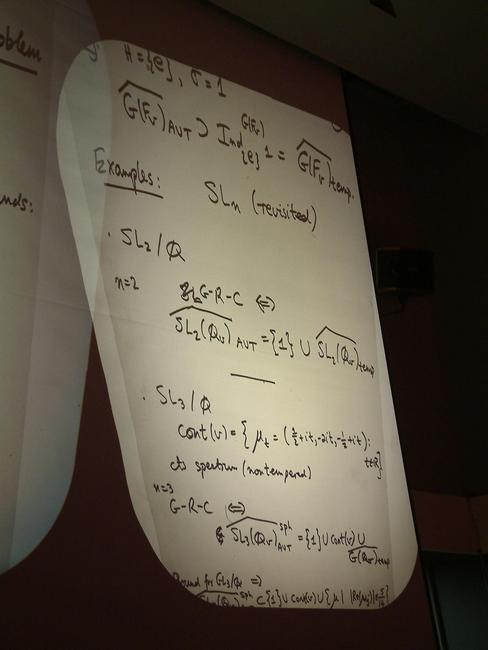 oblem
nds:
H = {e}, σ = 1
G(F_v)^_AUT ⊃ Ind_{e}^{G(F_v)} 1 = G(F_v)^_temp.
Examples:
SL_n (revisited)
· SL_2 / Q
n=2 G-R-C ⇔
SL_2(Q_v)^_AUT = {1} ∪ SL_2(Q_v)^_temp
· SL_3 / Q
Cont(v) = { μ_t = (½+it, -2it, -½+it) :
t∈R}
cts spectrum (nontempered)
n=3
G-R-C ⇔
SL_3(Q_v)^^sph_AUT = {1} ∪ Cont(v) ∪
G(Q_v)^_temp
Bound for GL_3/Q ⇒
SL_3(Q_v)^^sph ⊂ {1} ∪ Cont(v) ∪ {μ | |Re(μ_j)| ≤ 5/14}